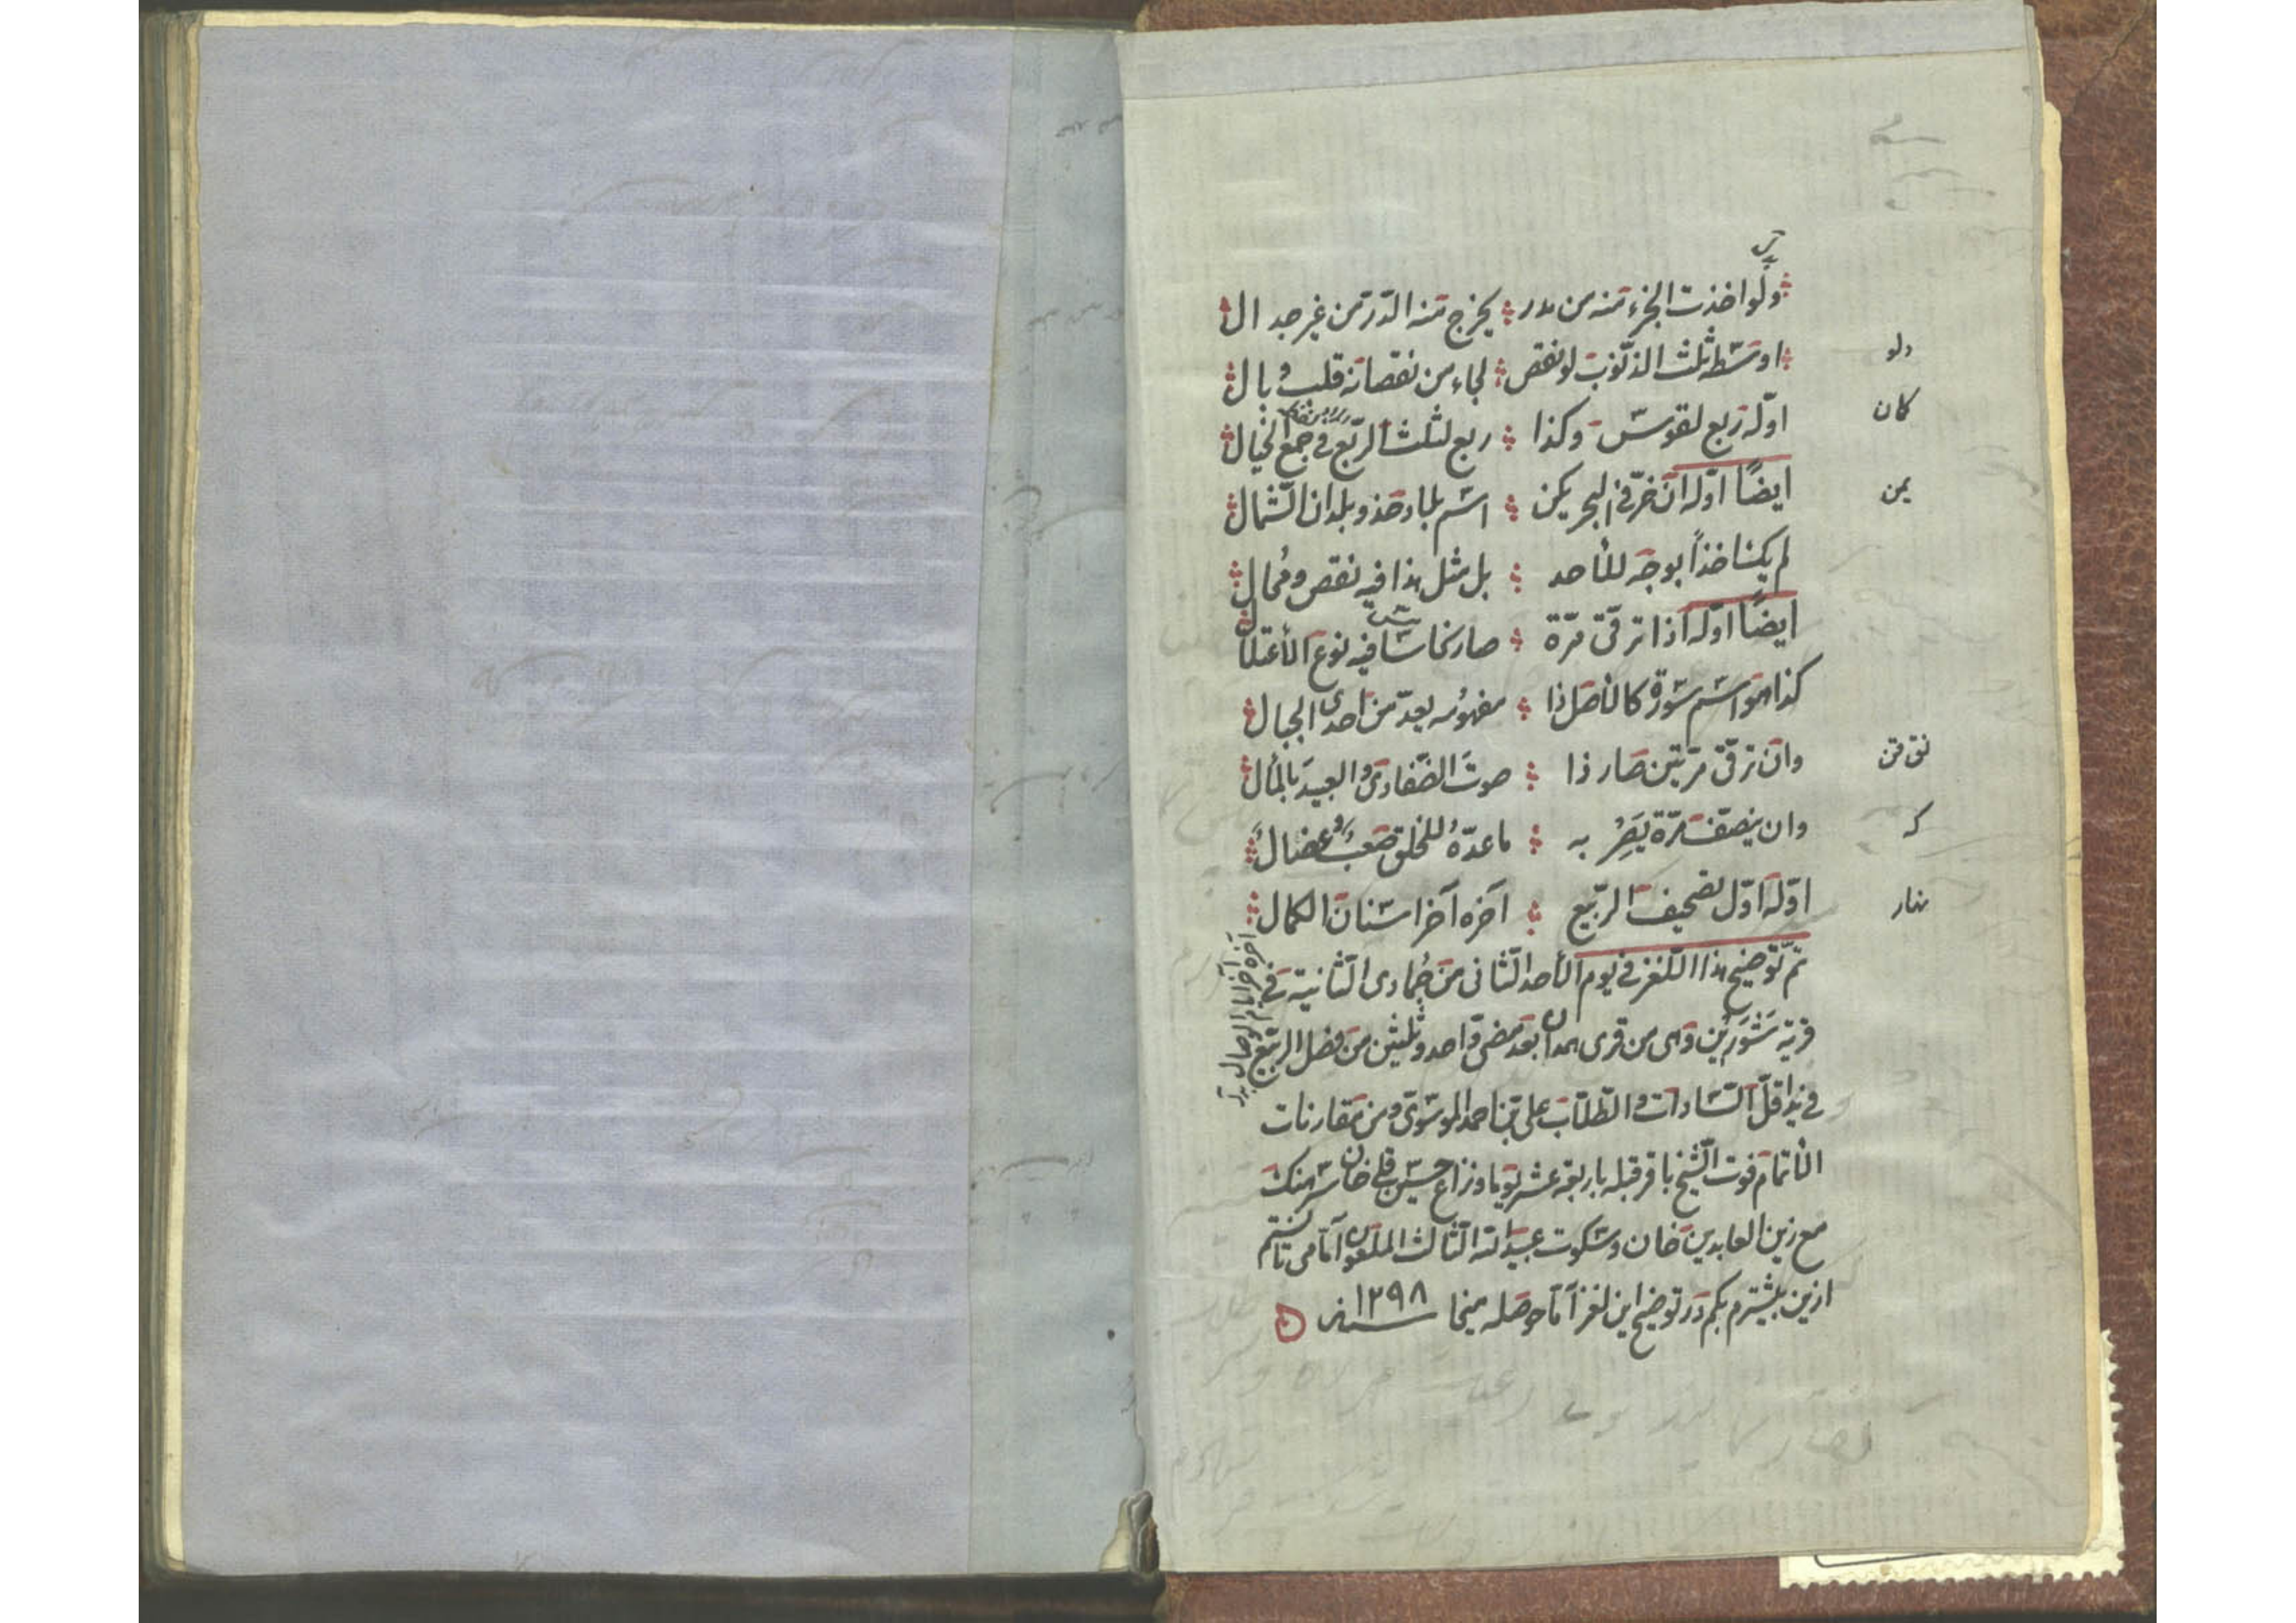 ولو اخذت الجزء منه من بدر يخرج منه الدر من غير جدال
اوسطه ثلث الذنوب لو نقص لجاء من نقصانه قلب وبال
دلو
اوله ربع لقوس وكذا ربع لثلث الربع في جمع الخيال
كان
ايضا اوله ان خر في البحر يكن اسم بلاد هند وبلدان الشمال
يمن
لم يكن اخذا بوجه للأحد بل مثل هذا فيه نقص ومحال
ايضا اوله اذا ترقى مرة صار نحاسا فيه نوع الأعتلال
كذا هو اسم سورة كالأصل ذا مفهومه يعد من احدى الجبال
وان ترقى مرتين صار ذا صوت الضفادى والعبيد بالمأل
نق قن
وان ينصف مرة يصر به ما عده للخلق صعب وعضال
كه
اوله اول تصحيف الربيع آخره آخر اسنان الكمال
آخره آخر ايام الوصال
تم توضيح هذا اللغز في يوم الأحد الثاني من جمادى الثانية في
قرية شورين وهى من قرى همدان بعد مضى واحد وثلثين من فصل الربيع
في يد اقل السادات والطلاب على بن احمد الموسوى ومن مقارنات
الأتمام فوت الشيخ باقر قبله باربعة عشر يوما ونزاع حسين قلى خان سرهنك
مع زين العابدين خان وسكوت عبيد الله الثالث الملعون اما مى تانستم
ازين بيشترم بكم در توضيح اين لغز اما حوصله ميخا سنه ١٢٩٨